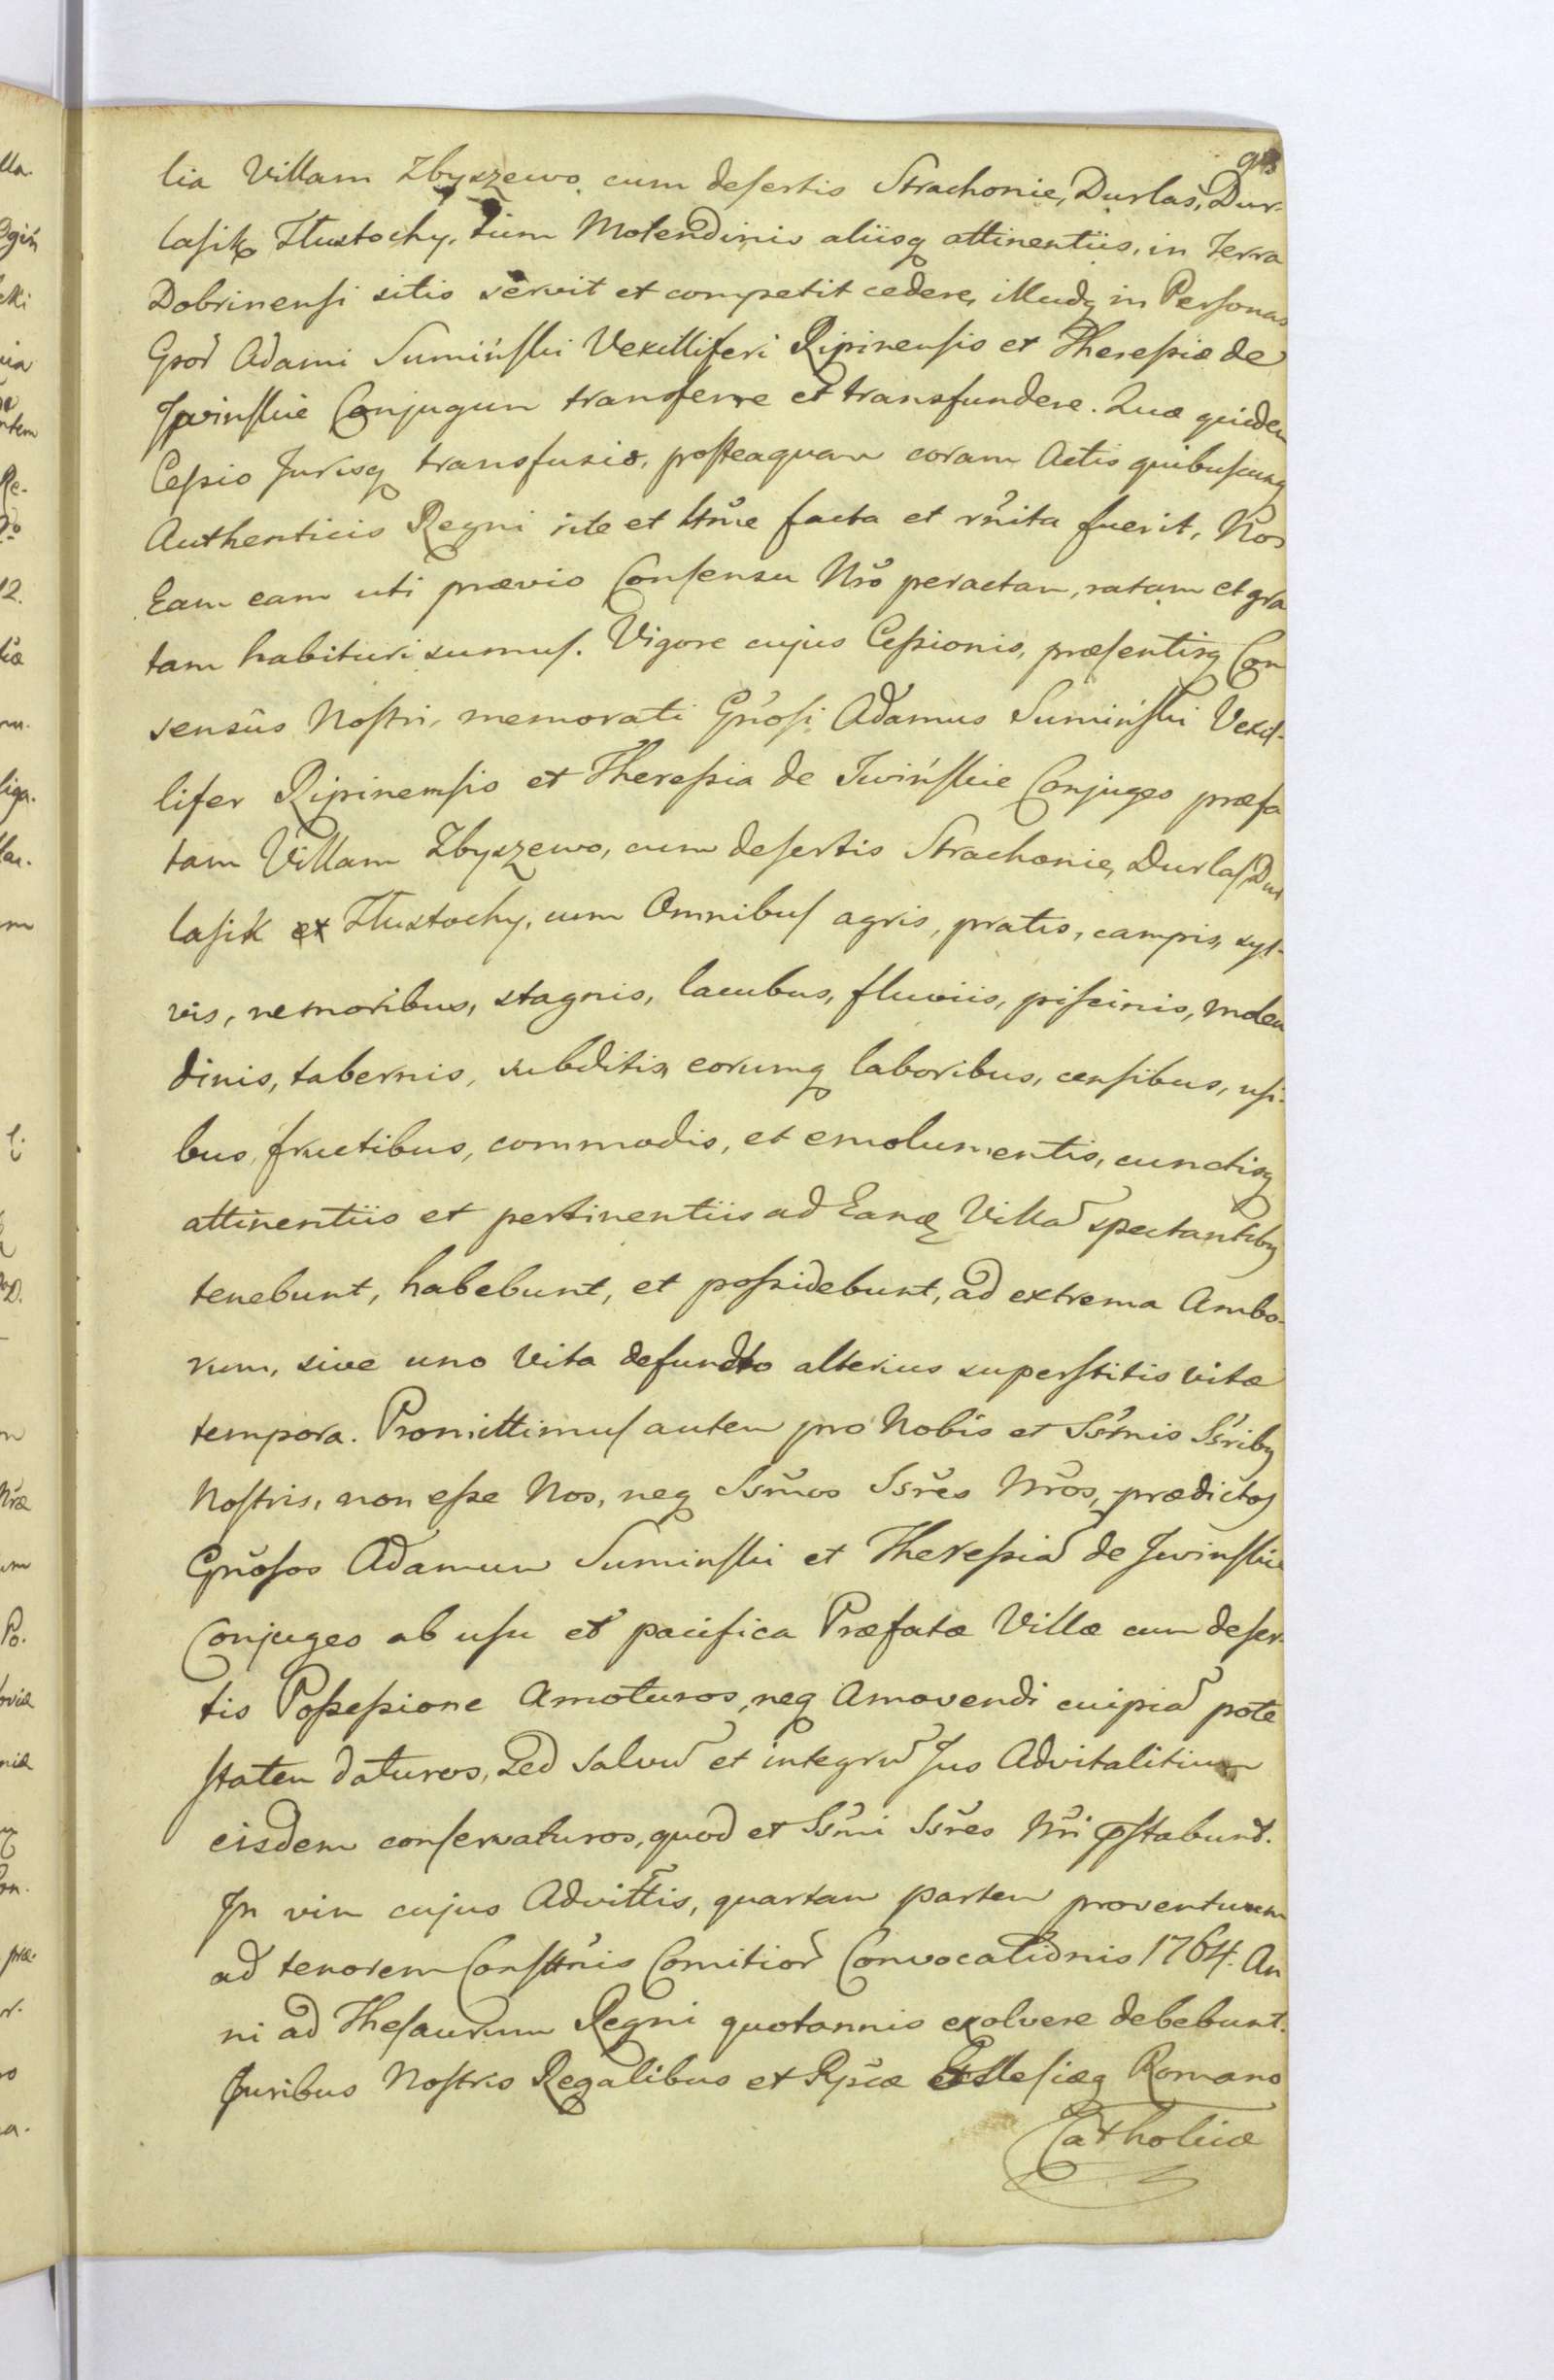 lia Villam Zbyszewo cum desertis Strachonie, Durlas, Dur-
lasik, Tłustochy, tum Molendinis aliisq attinentiis, in Terra
Dobrinensi sitis servit et competit cedere, illudq in Personas
Gnor Adami Sumiński Vexilliferi Ripinensis et Theressiæ de
Iwinskie Conjugum transferre et transfundere. Quæ quidem
Cessio Jurisq transfusio, posteaquam coram Actis quibuscunq
Authenticis Regni rite et ltme facta et rnita fuerit, Nos
Eam eam uti prævio Consensu Nro peractam, ratam et gra
tam habituri sumus. Vigore cujus Cessionis, præsentisq Con
sensûs Nostri, memorati Gnosi Adamus Sumiński Vexil-
lifer Ripinensis et Theressia de Iwińskie Conjuges præfa
tam Villam Zbyszewo, cum desertis Strachonie, Durlas Dur
lasik et Tłustochy, cum Omnibus agris, pratis, campis, syl-
vis, nemoribus, stagnis, lacubus, fluviis, piscinis, molen
dinis, tabernis, subditis, eorumq laboribus, censibus, usi-
bus, fructibus, commodis, et emolumentis, cunctisq
attinentiis et pertinentiis ad Eandq Villa spectantibq
tenebunt, habebunt, et possidebunt, ad extrema Ambo-
rum, sive uno Vita defuncto alterius superstitis vitæ
tempora. Promittimus autem pro Nobis et Ssmis Ssribq
Nostris, non esse Nos, neq Ssmos Ssres Nros, prædictos
Gnosos Adamum Suminski et Theressia de Iwinskie
Conjuges ab usu et pacifica Præfatæ Villæ cum deser-
tis Possessione Amoturos, neq Amovendi cuipia pote
statem daturos, Sed salvu et integru Jus Advitalitium
eisdem conservaturos, quod et Ssmi Ssres Nri pstabunt.
In vim cujus Advittis, quartam partem proventuum
ad tenorem Consttnis Comitior Convocationis 1764. An
ni ad Thesaurum Regni quotannis exolvere debebunt.
Juribus Nostris Regalibus et Rpcæ Ecclesiæq Romano
Catholicæ